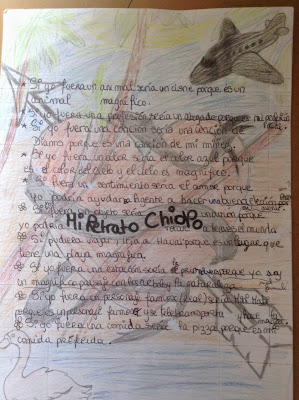 * Si yo fuera un animal sería un cisne porque es un
animal magnífico.
* Si yo fuera una profesión sería un abogado porque es mi profesión
* Si yo fuera una canción sería una canción de
porque es una canción de mi niñez.
* Si yo fuera un color sería el color azul porque
es el color del cielo y el cielo es magnífico.
fuera un sentimiento sería el amor porque
yo podría ayudar a la gente a hacer una
sería un avión porque
yo podría a través el mundo
Mi Retrato Chino
* Si pudiera viajar, iría a Hawai porque es un lugar que
tiene una playa magnífica.
* Si yo fuera una estación sería la primavera porque ya hay
un magnífico paisaje con los árboles y la naturaleza
* Si yo fuera un personaje famoso (real) sería
porque es un personaje famoso y se teletransporta y hace la magia.
* Si yo fuera una comida sería la pizza porque es mi
comida preferida.